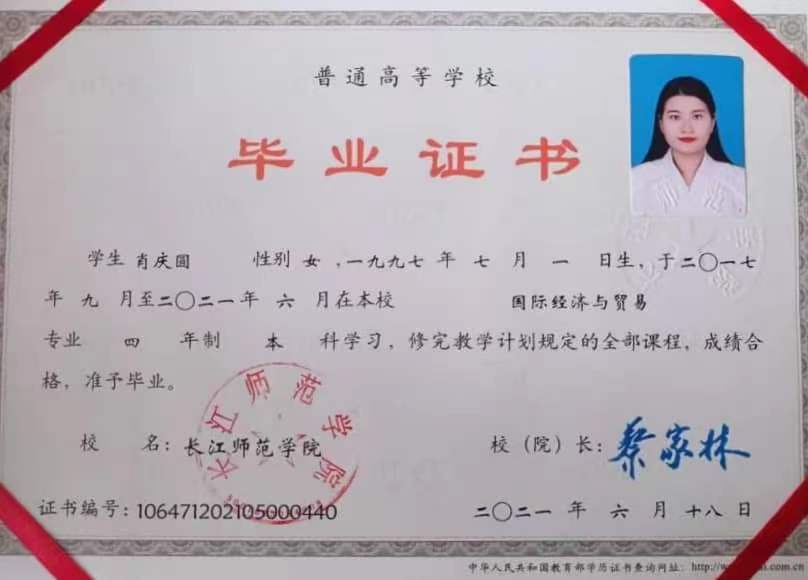 普通高等学校
毕业证书
学生 肖庆圆 性别 女 ,一九九七 年 七 月 一 日生，于二〇一七
年 九 月至二〇二一年 六 月在本校 国际经济与贸易
专业 四 年制 本 科学习，修完教学计划规定的全部课程，成绩合
格，准予毕业。
长江师范学院
校 名：长江师范学院 校（院）长：蔡家林
证书编号：106471202105000440 二〇二一 年 六 月 十八 日
中华人民共和国教育部学历证书查询网址：http://www.